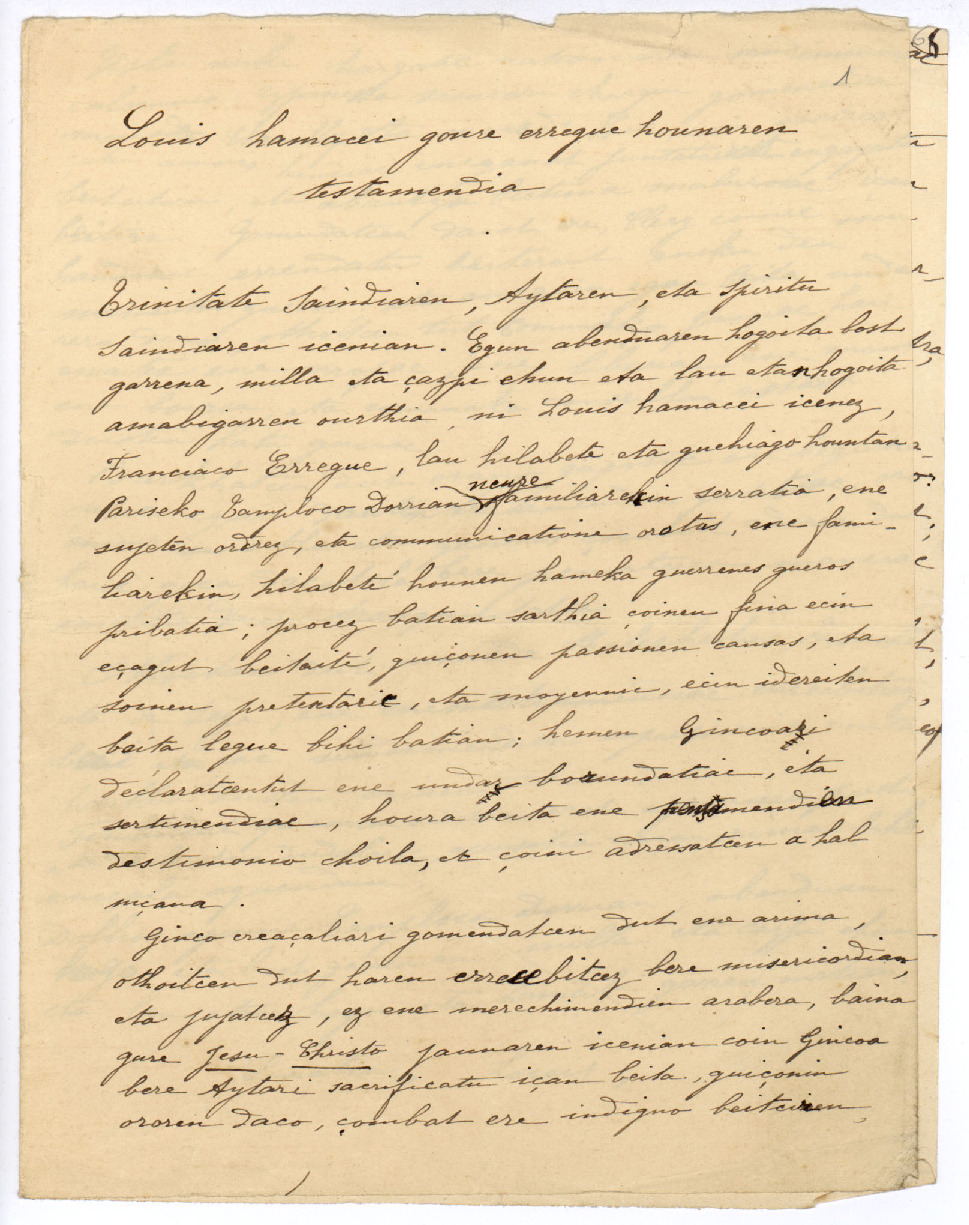 1
Louis hamacei goure erregue hounaren
testamendia
Trinitate Saindiaren, Aytaren, eta Spiritu
Saindiaren icenian. Egun abenduaren hogoita bost
garrena, milla eta çazpi ehun eta lau etan hogoita
amabigarren ourthia, ni Louis hamacei icenez,
Franciaco Erregue, lau hilabete eta guehiago hountan
Pariseko Tamploco Dorrian neure familiarekin serratia, ene
sujeten ordrez, eta communicatione orotas, ene fami-
liarekin, hilabeté hounen hameka guerrenes gueros
pribatia; procez batian sarthia çoinen fina ecin
eçagut beitaité, guiçonen passionen causas, eta
soinen pretextaric, eta moyennic, ecin idereiten
baita legue bihi batian; hemen Gincoari
declaratcentut ene undar borundatiac, eta
sertimendiac, houra beita ene mendien
destimonio choila, et çoini adressatcen a hal
niçana.
Ginco creaçaliari gomendatcen dut ene arima,
othoitcen dut haren errecebitcez bere misericordian,
eta jujatcez, ez ene merechimendien arabera, baina
gure Jesu-Christo jaunaren icenian coin Gincoa
bere Aytari sacrificatu içan beita, guiçonin
ororen daco, çombat ere indigno beitciren,